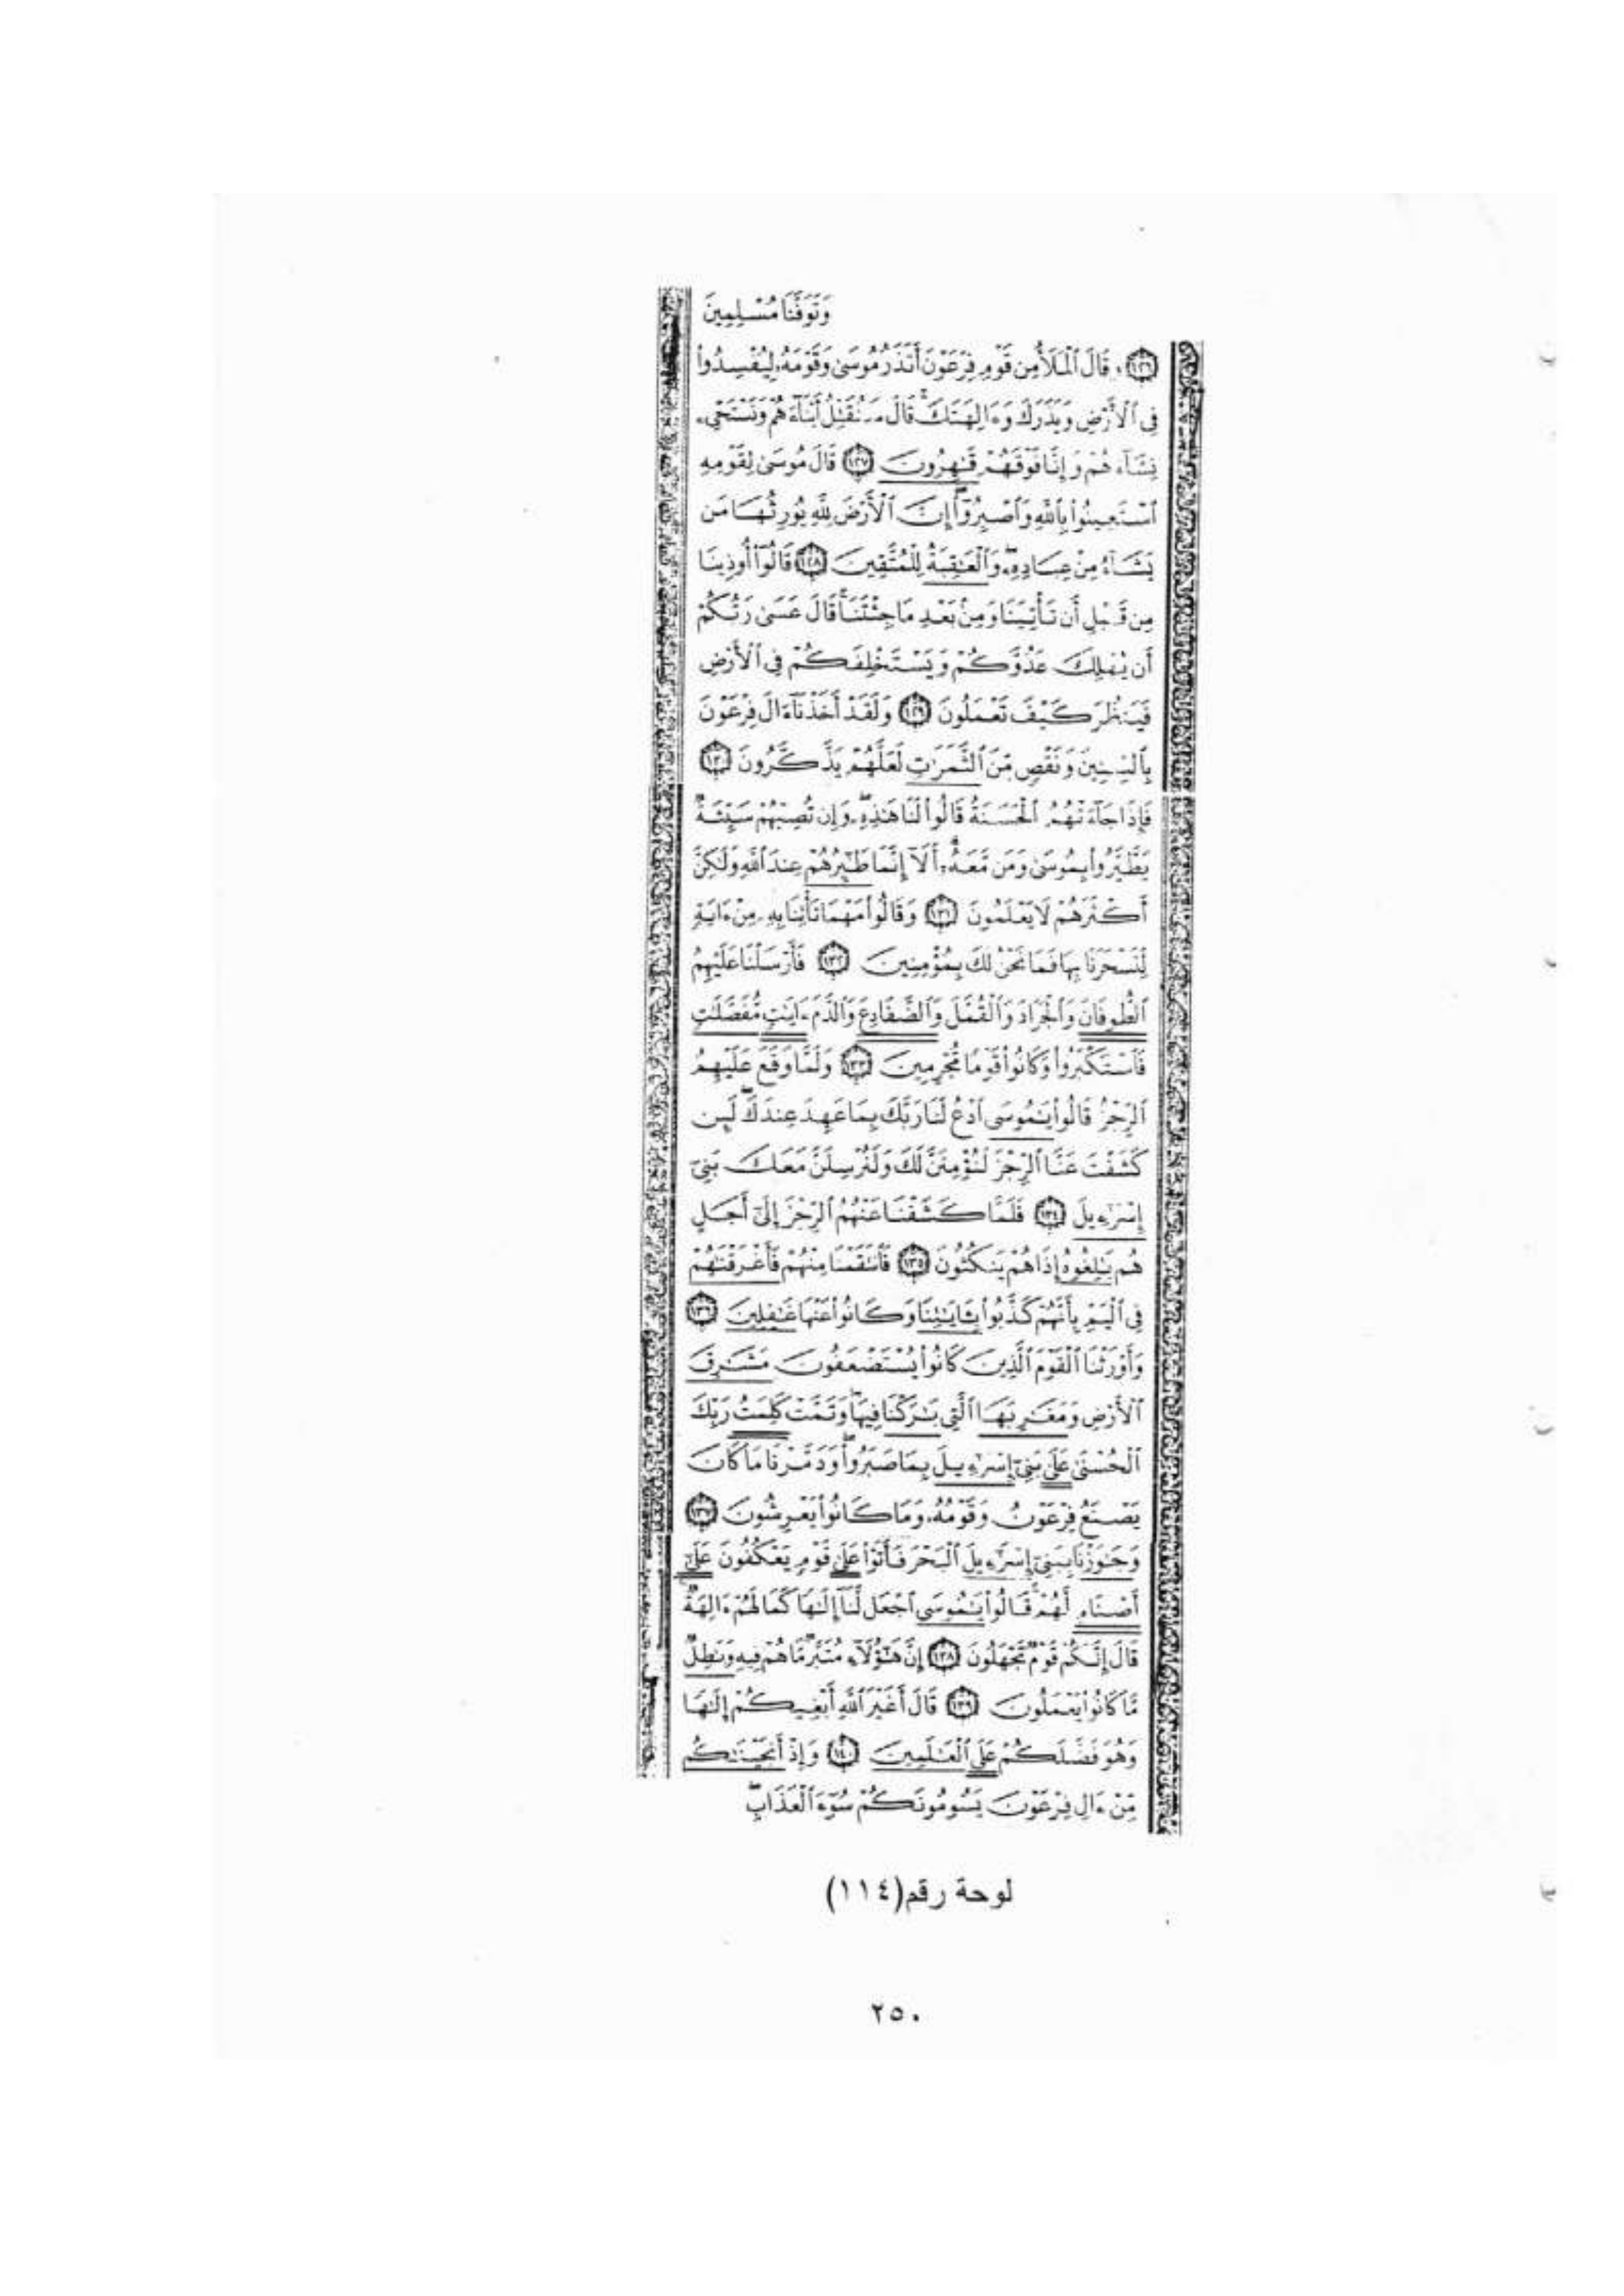 وَتَوَفَّنَا مُسْلِمِينَ
﴿١٢٦﴾ وَقَالَ ٱلْمَلَأُ مِن قَوْمِ فِرْعَوْنَ أَتَذَرُ مُوسَىٰ وَقَوْمَهُۥ لِيُفْسِدُوا۟
فِى ٱلْأَرْضِ وَيَذَرَكَ وَءَالِهَتَكَ ۚ قَالَ سَنُقَتِّلُ أَبْنَآءَهُمْ وَنَسْتَحْىِۦ
نِسَآءَهُمْ وَإِنَّا فَوْقَهُمْ قَـٰهِرُونَ ﴿١٢٧﴾ قَالَ مُوسَىٰ لِقَوْمِهِ
ٱسْتَعِينُوا۟ بِٱللَّهِ وَٱصْبِرُوٓا۟ ۖ إِنَّ ٱلْأَرْضَ لِلَّهِ يُورِثُهَا مَن
يَشَآءُ مِنْ عِبَادِهِۦ ۖ وَٱلْعَـٰقِبَةُ لِلْمُتَّقِينَ ﴿١٢٨﴾ قَالُوٓا۟ أُوذِينَا
مِن قَبْلِ أَن تَأْتِيَنَا وَمِنۢ بَعْدِ مَا جِئْتَنَا ۚ قَالَ عَسَىٰ رَبُّكُمْ
أَن يُهْلِكَ عَدُوَّكُمْ وَيَسْتَخْلِفَكُمْ فِى ٱلْأَرْضِ
فَيَنظُرَ كَيْفَ تَعْمَلُونَ ﴿١٢٩﴾ وَلَقَدْ أَخَذْنَآ ءَالَ فِرْعَوْنَ
بِٱلسِّنِينَ وَنَقْصٍ مِّنَ ٱلثَّمَرَٰتِ لَعَلَّهُمْ يَذَّكَّرُونَ ﴿١٣٠﴾
فَإِذَا جَآءَتْهُمُ ٱلْحَسَنَةُ قَالُوا۟ لَنَا هَـٰذِهِۦ ۖ وَإِن تُصِبْهُمْ سَيِّئَةٌ
يَطَّيَّرُوا۟ بِمُوسَىٰ وَمَن مَّعَهُۥٓ ۗ أَلَآ إِنَّمَا طَـٰٓئِرُهُمْ عِندَ ٱللَّهِ وَلَـٰكِنَّ
أَكْثَرَهُمْ لَا يَعْلَمُونَ ﴿١٣١﴾ وَقَالُوا۟ مَهْمَا تَأْتِنَا بِهِۦ مِنْ ءَايَةٍ
لِّتَسْحَرَنَا بِهَا فَمَا نَحْنُ لَكَ بِمُؤْمِنِينَ ﴿١٣٢﴾ فَأَرْسَلْنَا عَلَيْهِمُ
ٱلطُّوفَانَ وَٱلْجَرَادَ وَٱلْقُمَّلَ وَٱلضَّفَادِعَ وَٱلدَّمَ ءَايَـٰتٍ مُّفَصَّلَـٰتٍ
فَٱسْتَكْبَرُوا۟ وَكَانُوا۟ قَوْمًا مُّجْرِمِينَ ﴿١٣٣﴾ وَلَمَّا وَقَعَ عَلَيْهِمُ
ٱلرِّجْزُ قَالُوا۟ يَـٰمُوسَى ٱدْعُ لَنَا رَبَّكَ بِمَا عَهِدَ عِندَكَ ۖ لَئِن
كَشَفْتَ عَنَّا ٱلرِّجْزَ لَنُؤْمِنَنَّ لَكَ وَلَنُرْسِلَنَّ مَعَكَ بَنِىٓ
إِسْرَٰٓءِيلَ ﴿١٣٤﴾ فَلَمَّا كَشَفْنَا عَنْهُمُ ٱلرِّجْزَ إِلَىٰٓ أَجَلٍ
هُم بَـٰلِغُوهُ إِذَا هُمْ يَنكُثُونَ ﴿١٣٥﴾ فَٱنتَقَمْنَا مِنْهُمْ فَأَغْرَقْنَـٰهُمْ
فِى ٱلْيَمِّ بِأَنَّهُمْ كَذَّبُوا۟ بِـَٔايَـٰتِنَا وَكَانُوا۟ عَنْهَا غَـٰفِلِينَ ﴿١٣٦﴾
وَأَوْرَثْنَا ٱلْقَوْمَ ٱلَّذِينَ كَانُوا۟ يُسْتَضْعَفُونَ مَشَـٰرِقَ
ٱلْأَرْضِ وَمَغَـٰرِبَهَا ٱلَّتِى بَـٰرَكْنَا فِيهَا ۖ وَتَمَّتْ كَلِمَتُ رَبِّكَ
ٱلْحُسْنَىٰ عَلَىٰ بَنِىٓ إِسْرَٰٓءِيلَ بِمَا صَبَرُوا۟ ۖ وَدَمَّرْنَا مَا كَانَ
يَصْنَعُ فِرْعَوْنُ وَقَوْمُهُۥ وَمَا كَانُوا۟ يَعْرِشُونَ ﴿١٣٧﴾
وَجَـٰوَزْنَا بِبَنِىٓ إِسْرَٰٓءِيلَ ٱلْبَحْرَ فَأَتَوْا۟ عَلَىٰ قَوْمٍ يَعْكُفُونَ عَلَىٰٓ
أَصْنَامٍ لَّهُمْ ۚ قَالُوا۟ يَـٰمُوسَى ٱجْعَل لَّنَآ إِلَـٰهًا كَمَا لَهُمْ ءَالِهَةٌ ۚ
قَالَ إِنَّكُمْ قَوْمٌ تَجْهَلُونَ ﴿١٣٨﴾ إِنَّ هَـٰٓؤُلَآءِ مُتَبَّرٌ مَّا هُمْ فِيهِ وَبَـٰطِلٌ
مَّا كَانُوا۟ يَعْمَلُونَ ﴿١٣٩﴾ قَالَ أَغَيْرَ ٱللَّهِ أَبْغِيكُمْ إِلَـٰهًا
وَهُوَ فَضَّلَكُمْ عَلَى ٱلْعَـٰلَمِينَ ﴿١٤٠﴾ وَإِذْ أَنجَيْنَـٰكُم
مِّنْ ءَالِ فِرْعَوْنَ يَسُومُونَكُمْ سُوٓءَ ٱلْعَذَابِ ۖ
لوحة رقم (١١٤)
٢٥٠